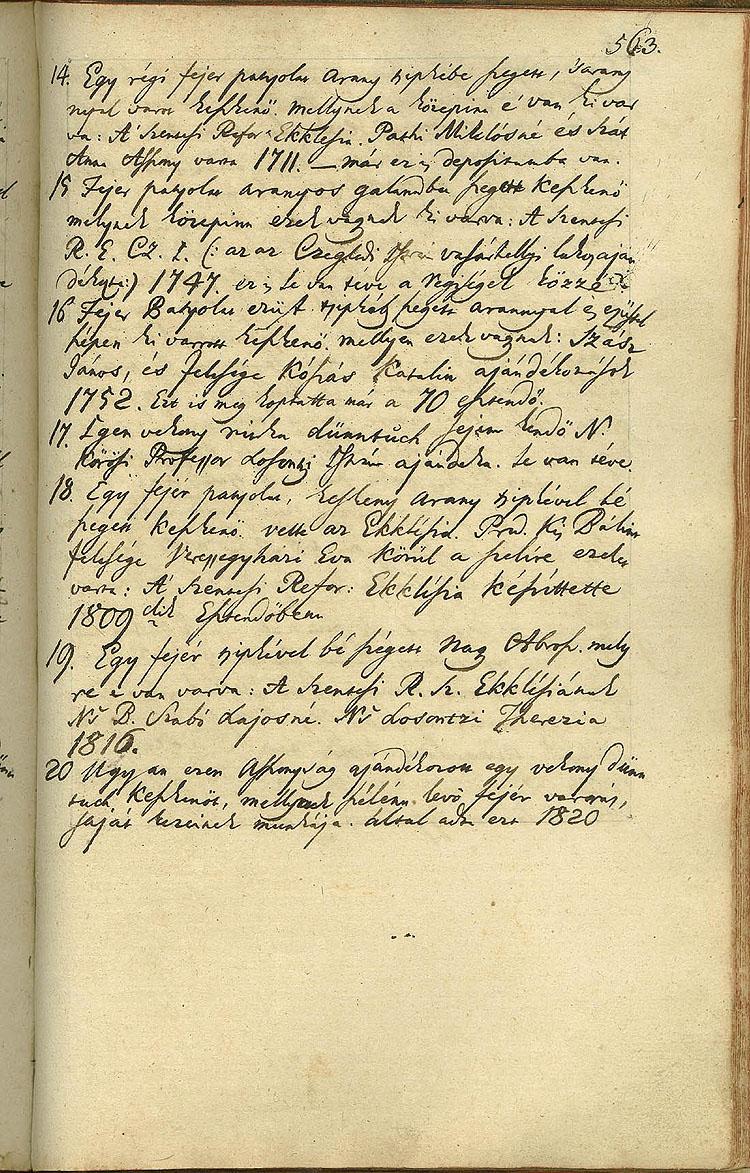 563.
14. Egy régi fejér patyolat arany tsipkébe szegett, 's arany
nyal varrt keszkenő. mellynek a közepinn é van ki var
va: A' Szentesi Refor. Ekklesia. Pathi Miklósné és Szűts
Anna Asszony varta 1711. — már ez is depositumba van.
15 Fejér patyolat aranyos galandba szegett keszkenő
melynek közepinn ezek vagynak ki varva: A Szentesi
R. E. CZ. I. (: az az Czeglédi István vásárhellyi lakos aján
dékozta:) 1747. ez is le van téve a régiségek közzé
16 Fejér Batyolat ezüst tsipkés szegett arannyal és ezüstel
szépen ki varrott keszkenő. mellyen ezek vagynak: Szász
János, és felesége Kósiás Katalin ajándékozások
1752. Ezt is meg koptatta már a 70 esztendő.
17. Igen vekony ritka dünntuch sejem kendő N.
Körösi Professor Losontzi István ajándeka. le van téve.
18. Egy fejér patyolat, keskeny arany tsipkével bé
szegett keszkenő. vette az Ekklésia. Prad. Kis Bálint
felesége Veresegyházi Eva körül a szelire ezeket
varta: A' Szentesi Refor: Ekklésia készíttette
1809dik Esztendőbenn
19. Egy fejér tsipkével bé szegett nagy Abrosz. mely
re e van varva: A Szentesi R. Sz. Ekklésiának
Ns B. Szabó Lajosné. Ns Losontzi Therezia
1816.
20 Ugyan ezen Asszonyság ajándékozott egy vekony dünn
tuch keszkenőt, mellynek szélénn levő fejér varrás,
saját kezeinek munkája. által adta ezt 1820